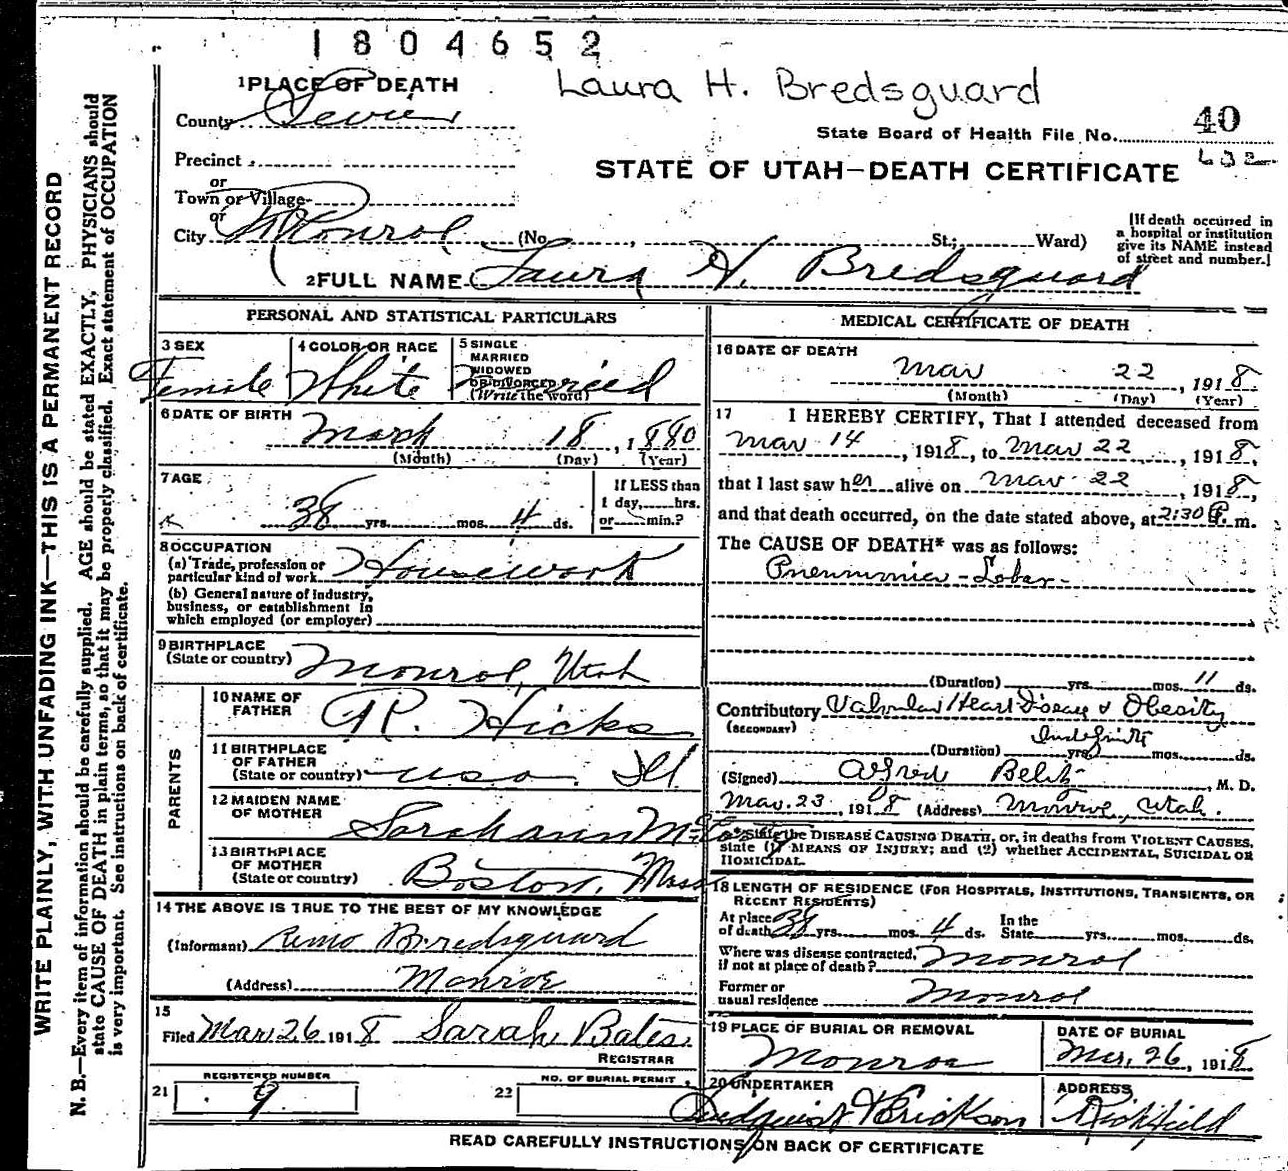 1804652
1 PLACE OF DEATH
Laura H. Bredsguard
County Sevier
State Board of Health File No. 40
632
Precinct
STATE OF UTAH—DEATH CERTIFICATE
or
Town or Village
or
City Monroe (No. , St.; Ward)
[If death occurred in
a hospital or institution
give its NAME instead
of street and number.]
2 FULL NAME Laura H. Bredsguard
WRITE PLAINLY, WITH UNFADING INK—THIS IS A PERMANENT RECORD
N. B.—Every item of information should be carefully supplied. AGE should be stated EXACTLY, PHYSICIANS should
state CAUSE OF DEATH in plain terms, so that it may be properly classified. Exact statement of OCCUPATION
is very important. See instructions on back of certificate.
PERSONAL AND STATISTICAL PARTICULARS
3 SEX
Female
4 COLOR OR RACE
White
5 SINGLE
MARRIED
WIDOWED
OR DIVORCED
(Write the word)
Married
6 DATE OF BIRTH
March 18, 1880
(Month) (Day) (Year)
7 AGE
38 yrs. mos. 4 ds.
If LESS than
1 day, hrs.
or min.?
8 OCCUPATION
(a) Trade, profession or
particular kind of work Housework
(b) General nature of industry,
business, or establishment in
which employed (or employer)
9 BIRTHPLACE
(State or country) Monroe, Utah
PARENTS
10 NAME OF
FATHER
Hicks
11 BIRTHPLACE
OF FATHER
(State or country) usa. Ill
12 MAIDEN NAME
OF MOTHER
Sarah ann
13 BIRTHPLACE
OF MOTHER
(State or country) Boston, Mass
14 THE ABOVE IS TRUE TO THE BEST OF MY KNOWLEDGE
(Informant) Bredsguard
(Address) Monroe
15
Filed Mar 26 1918 Sarah Bates
REGISTRAR
REGISTERED NUMBER
21 9
NO. OF BURIAL PERMIT
22
MEDICAL CERTIFICATE OF DEATH
16 DATE OF DEATH
Mar 22, 1918
(Month) (Day) (Year)
17 I HEREBY CERTIFY, That I attended deceased from
Mar 14, 1918, to Mar 22, 1918,
that I last saw her alive on Mar 22, 1918,
and that death occurred, on the date stated above, at 2:30 P. m.
The CAUSE OF DEATH* was as follows:
Pneumonia - Lobar
(Duration) yrs. mos. 11 ds.
Contributory Valvular Heart Disease & Obesity
(SECONDARY)
Indefinite
(Duration) yrs. mos. ds.
(Signed) Alfred , M. D.
Mar. 23, 1918 (Address) Monroe, Utah.
*State the DISEASE CAUSING DEATH, or, in deaths from VIOLENT CAUSES,
state (1) MEANS OF INJURY; and (2) whether ACCIDENTAL, SUICIDAL OR
HOMICIDAL.
18 LENGTH OF RESIDENCE (FOR HOSPITALS, INSTITUTIONS, TRANSIENTS, OR
RECENT RESIDENTS)
At place
of death 38 yrs. mos. 4 ds.
In the
State yrs. mos. ds.
Where was disease contracted,
if not at place of death? Monroe
Former or
usual residence Monroe
19 PLACE OF BURIAL OR REMOVAL
Monroe
DATE OF BURIAL
Mar. 26, 1918
20 UNDERTAKER
Erickson
ADDRESS
Richfield
READ CAREFULLY INSTRUCTIONS ON BACK OF CERTIFICATE